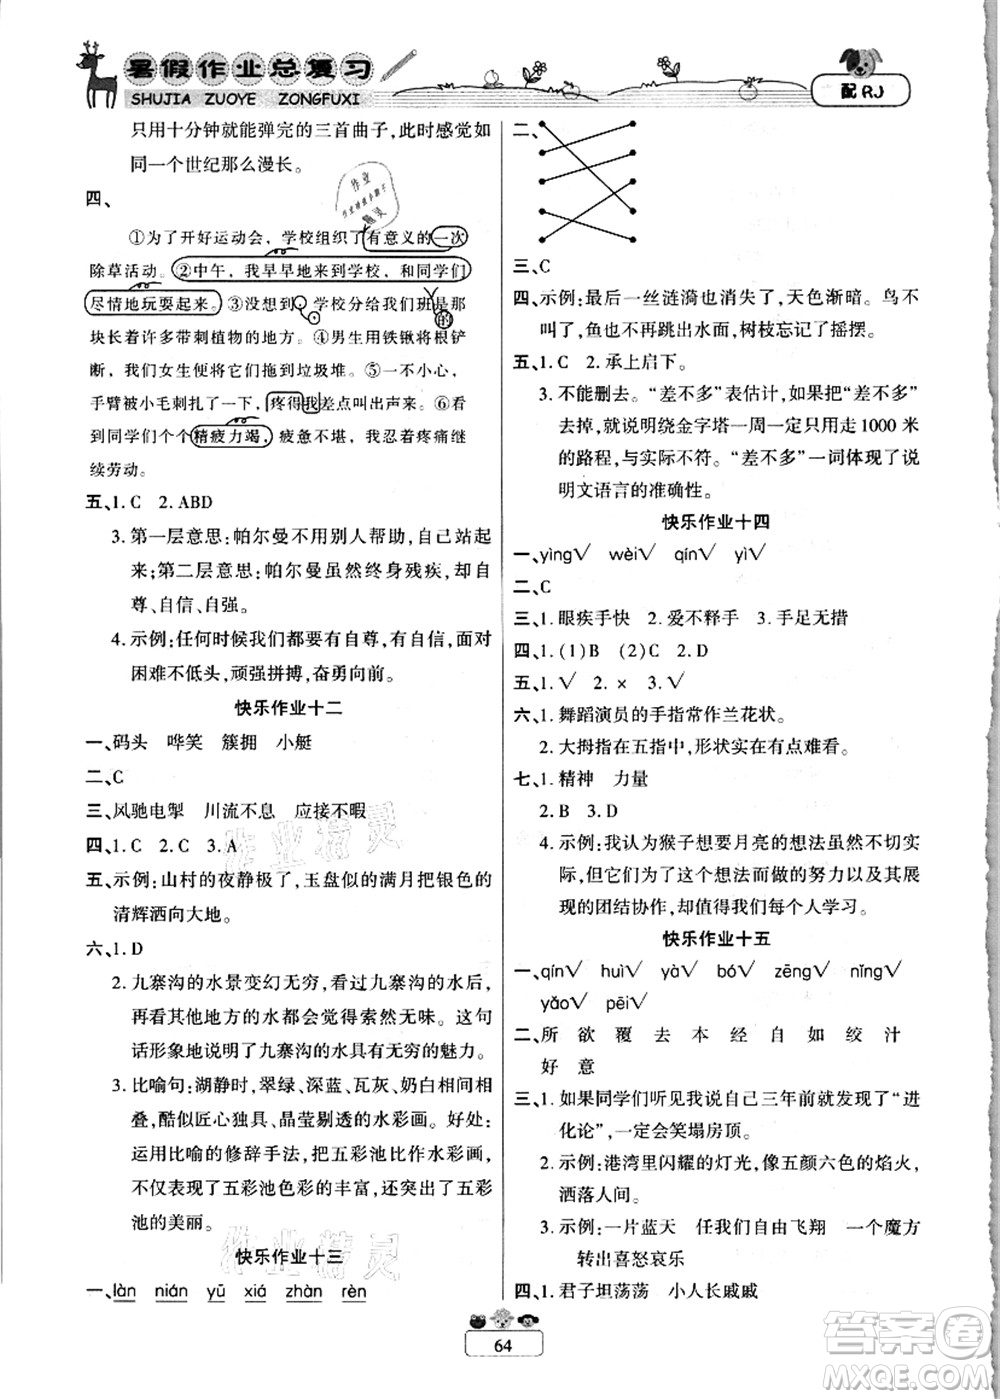 暑假作业总复习
SHUJIA ZUOYE ZONGFUXI
配RJ
只用十分钟就能弹完的三首曲子,此时感觉如
同一个世纪那么漫长。
四、
①为了开好运动会,学校组织了有意义的一次
除草活动。②中午,我早早地来到学校,和同学们
尽情地玩耍起来。③没想到,学校分给我们班是那
的
块长着带刺植物的地方。④男生用铁锹将根铲
断,我们女生便把它们拖到垃圾堆。⑤一不小心,
手臂被小毛刺扎了一下,疼得我差点叫出声来。⑥看
到同学们个个精疲力竭,疲惫不堪,我忍着疼痛继
续劳动。
五、1. C 2. ABD
3. 第一层意思:帕尔曼不用别人帮助,自己站起
来;第二层意思:帕尔曼虽然终身残疾,却自
尊、自信、自强。
4. 示例:任何时候我们都要有自尊,有自信,面对
困难不低头,顽强拼搏,奋勇向前。
快乐作业十二
一、码头 哗笑 簇拥 小艇
二、C
三、风驰电掣 川流不息 应接不暇
四、1. C 2. C 3. A
五、示例:山村的夜静极了,玉盘似的满月把银色的
清辉洒向大地。
六、1. D
2. 九寨沟的水景变幻无穷,看过九寨沟的水后,
再看其他地方的水都会觉得索然无味。这句
话形象地说明了九寨沟的水具有无穷的魅力。
3. 比喻句:湖静时,翠绿、深蓝、瓦灰、奶白相叠相
叠,酷似匠心独具、晶莹剔透的水彩画。好处:
运用比喻的修辞手法,将五彩池比作水彩画,
不仅表现了五彩池色彩的丰富,还写出了五彩
池的美丽。
快乐作业十三
一、làn nián yū xiá zhàn rèn
二、
三、C
四、示例:最后一丝涟漪也消失了,天色渐暗。鸟不
叫了,鱼也不再跳出水面,树枝忘记了摇摆。
五、1. C 2. 承上启下。
3. 不能删去。“差不多”表估计,如果把“差不多”
去掉,就说明绕金字塔一周一定只用走 1000 米
的路程,与实际不符。“差不多”一词体现了说
明文语言的准确性。
快乐作业十四
一、yìng√ wèi√ qín√ yì√
二、C
三、1. 眼疾手快 2. 爱不释手 3. 手足无措
四、1. (1)B (2)C 2. D
五、1. √ 2. × 3. √
六、1. 舞蹈演员的手指常作兰花状。
2. 大拇指在五指中,形状实在有点难看。
七、1. 精神 力量
2. B 3. D
4. 示例:我认为猴子想要月亮的想法虽然不切实
际,但它们为了这个想法而做的努力以及其展
现的团结协作,却值得我们每个人学习。
快乐作业十五
一、qín√ huì√ yà√ zēng√ nǐng√
yǎo√ pēi√
二、所 欲 覆 去 本 经 自 如 绞 汁
好 意
三、1. 如果同学们听见我说自己三年前发现了“进
化论”,一定会笑塌房顶。
2. 示例:港湾里闪耀的灯光,像五颜六色的焰火,
洒落人间。
3. 示例:一片蓝天 任我们自由飞翔 一个魔方
转出喜怒哀乐
四、1. 君子坦荡荡 小人长戚戚
64
作业精灵
作业精灵
答案圈
MXQE.COM